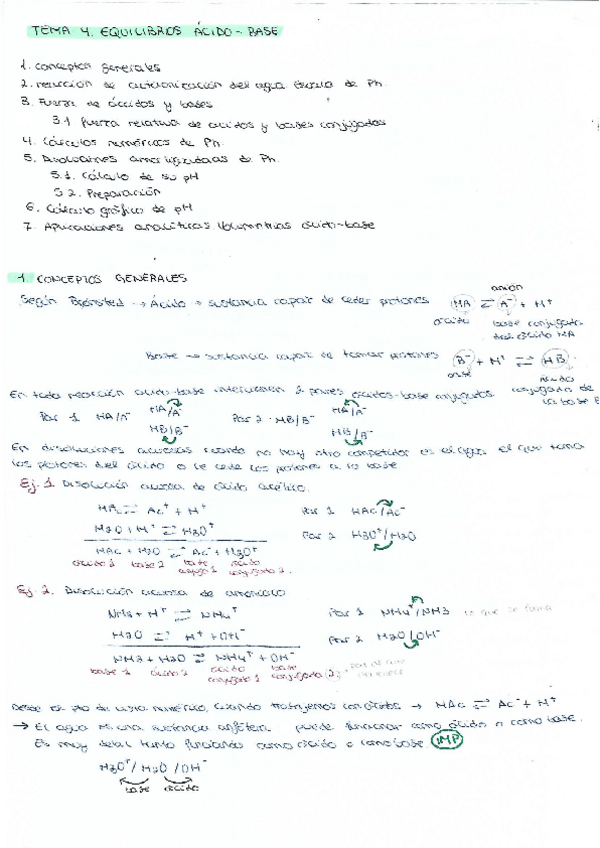 TEMA 4. EQUILIBRIOS ÁCIDO-BASE
1. conceptos generales
2. reacción de autoionización del agua Escala de Ph.
3. Fuerza de ácidos y bases
3.1 fuerza relativa de ácidos y bases conjugados
4. Cálculos numéricos de Ph.
5. Disoluciones amortiguadoras de Ph.
5.1. Cálculo de su pH
5.2. Preparación
6. Cálculo gráfico de pH
7. Aplicaciones analíticas Volumetrías ácido-base
1. CONCEPTOS GENERALES
anión
Según Brönsted → Ácido → sustancia capaz de ceder protones HA ⇌ A⁻ + H⁺
ácido base conjugada
del ácido HA
Base → sustancia capaz de tomar protones B⁻ + H⁺ ⇌ HB
base ácido
conjugado de
la base B
En toda reacción ácido-base intervienen 2 pares ácidos-base conjugados
Par 1 HA/A⁻ HA/A⁻ Par 2 · HB/B⁻ HA/A⁻
HB/B⁻ HB/B⁻
En disoluciones acuosas cuando no hay otro competidor es el agua el que toma
los protones del ácido o le cede los protones a la base
Ej. 1. Disolución acuosa de ácido acético.
HA ⇌ Ac⁻ + H⁺ Par 1 HAc/Ac⁻
H2O + H⁺ ⇌ H3O⁺ Par 2 H3O⁺/H2O
HAc + H2O ⇌ Ac⁻ + H3O⁺
ácido 1 base 2 base ácido
conjug 1 conjugado 2.
Ej. 2. Disolución acuosa de amoniaco
NH3 + H⁺ ⇌ NH4⁺ Par 1 NH4⁺/NH3 lo que se forma
H2O ⇌ H⁺ + OH⁻ Par 2 H2O/OH⁻
NH3 + H2O ⇌ NH4⁺ + OH⁻
base 1 ácido 2 ácido base
conjugado 1 conjugada (2)
Desde el pto de vista numérico, cuando trabajemos con ácidos → HAc ⇌ Ac⁻ + H⁺
→ El agua es una sustancia anfótera puede funcionar como ácido o como base.
Es muy débil tanto funciando como ácido o como base IMP
H3O⁺/H2O/OH⁻
base ácido